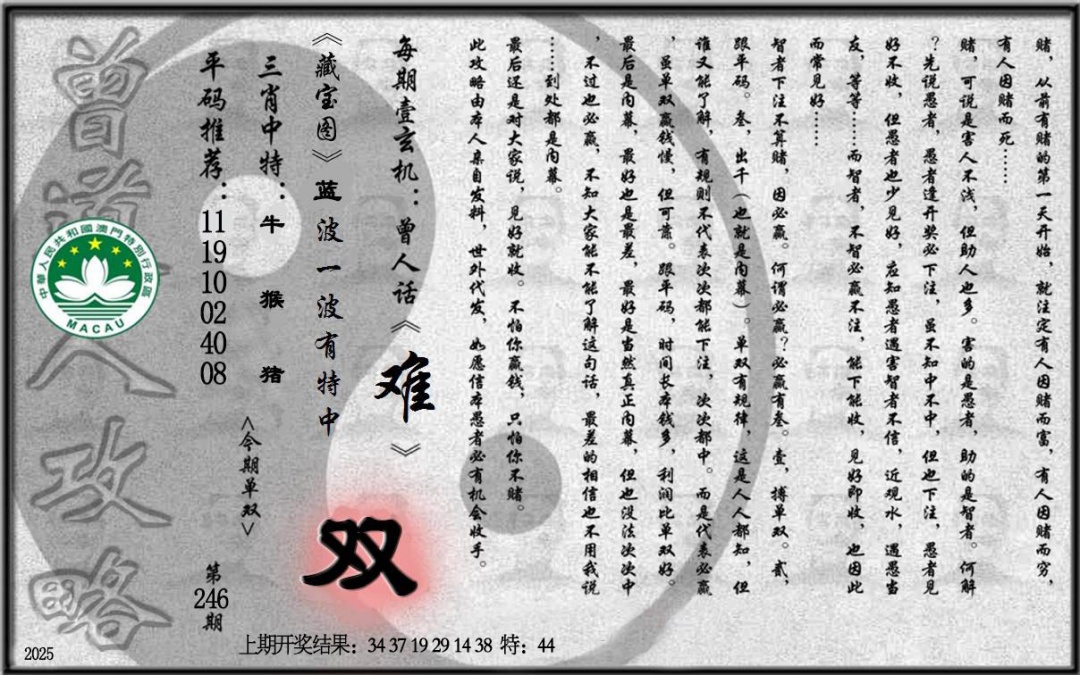 赌，从前有赌的第一天开始，就注定有人因赌而富，有人因赌而穷，
有人因赌而死……
赌，可说是害人不浅，但助人也多。害的是愚者，助的是智者。何解
？先说愚者，愚者逢开奖必下注，虽不知中不中，但也下注，愚者见
好不收，但愚者也少见好，应知愚者遇害智者不信，近观水，遇愚当
友，等等……而智者，不智必赢不注，能下能收，见好即收，也因此
而常见好……
智者下注不算赌，因必赢。何谓必赢？必赢有叁。壹，搏单双。贰，
跟平码。叁，出千（也就是内幕）。单双有规律，这是人人都知，但
谁又能了解，有规则不代表次次都能下注，次次都中。而是代表必赢
，虽单双赢钱慢，但可靠。跟平码，时间长本钱多，利润比单双好。
最后是内幕，最好也是最差，最好是当然真正内幕，但也没法次次中
，不过也必赢，不知大家能不能了解这句话，最差的相信也不用我说
……到处都是内幕。
最后还是对大家说，见好就收。不怕你赢钱，只怕你不赌。
此攻略由本人亲自发料，世外代发，如愿信本愚者必有机会收手。
每期壹玄机：曾人话《难》
《藏宝图》蓝波一波有特中
双
三肖中特：牛 猴 猪
<今期单双>
平码推荐：11 19 10 02 40 08
第246期
曾道人攻略
中華人民共和國澳門特別行政區
MACAU
上期开奖结果：34 37 19 29 14 38 特：44
2025